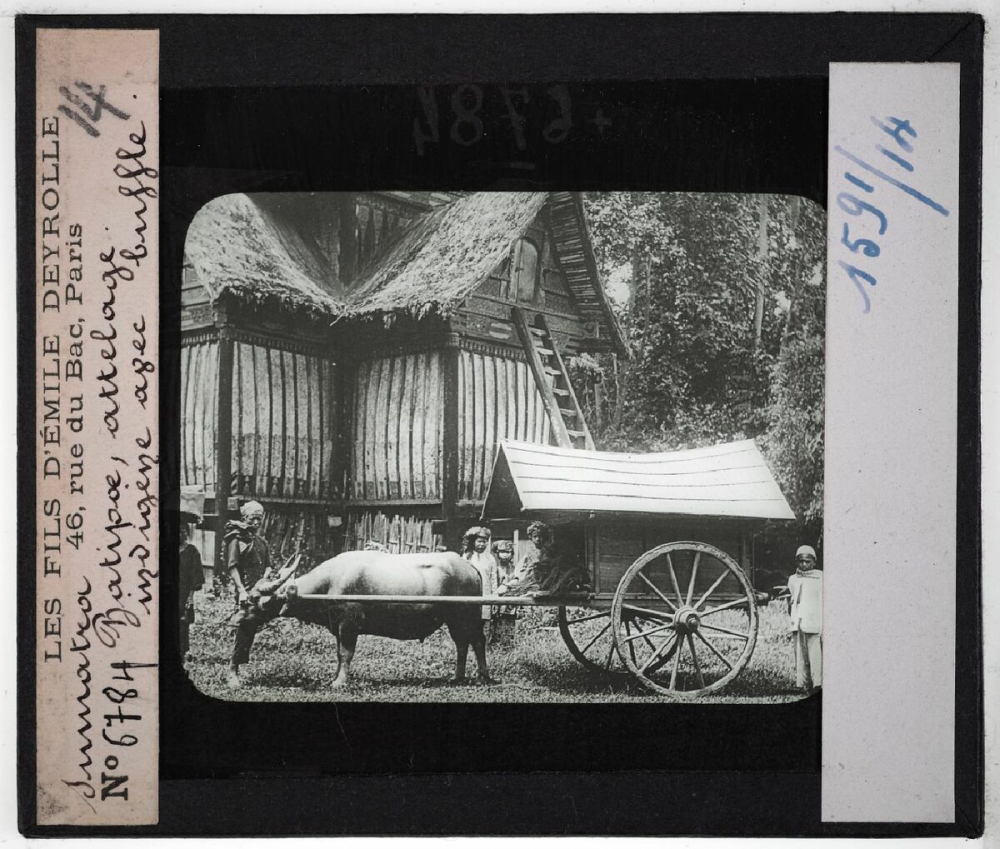 LES FILS D'ÉMILE DEYROLLE
46, rue du Bac, Paris
14
Sumatra
No 6784 Batipoe, attelage
indigène avec buffle.
1591/14
+ 6784